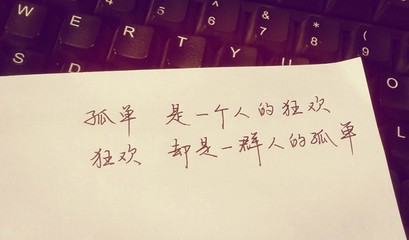 W E R T Y & 7 * 8 ( 9
S D O
L
孤单 是一个人的狂欢
狂欢 却是一群人的孤单